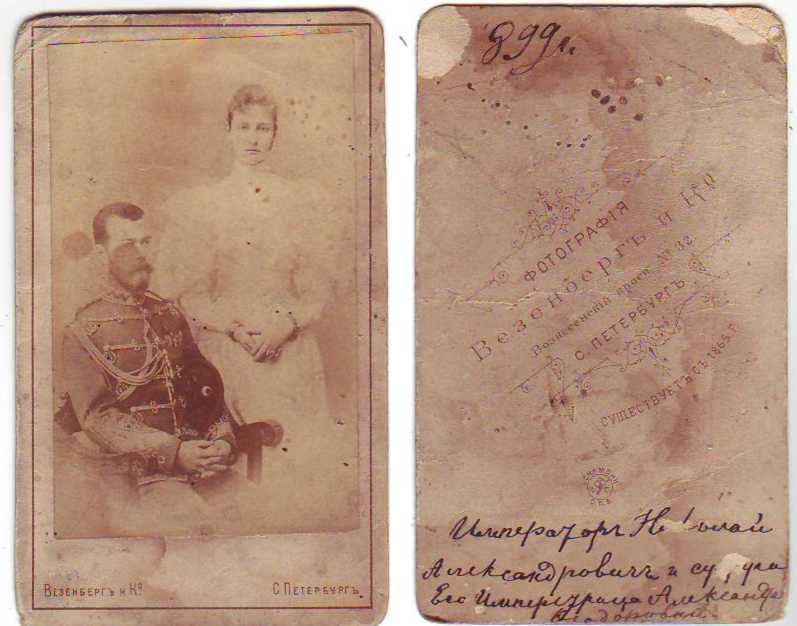 Везенбергъ и Ко.
С. Петербургъ.
899 г.
ФОТОГРАФІЯ
Везенбергъ и Ко
Вознесенскій просп. № 32
С. ПЕТЕРБУРГЪ
СУЩЕСТВУЕТЪ СЪ 1865 Г.
Императоръ Николай
Александровичъ и супруга
Его Императрица Александра
Феодоровна